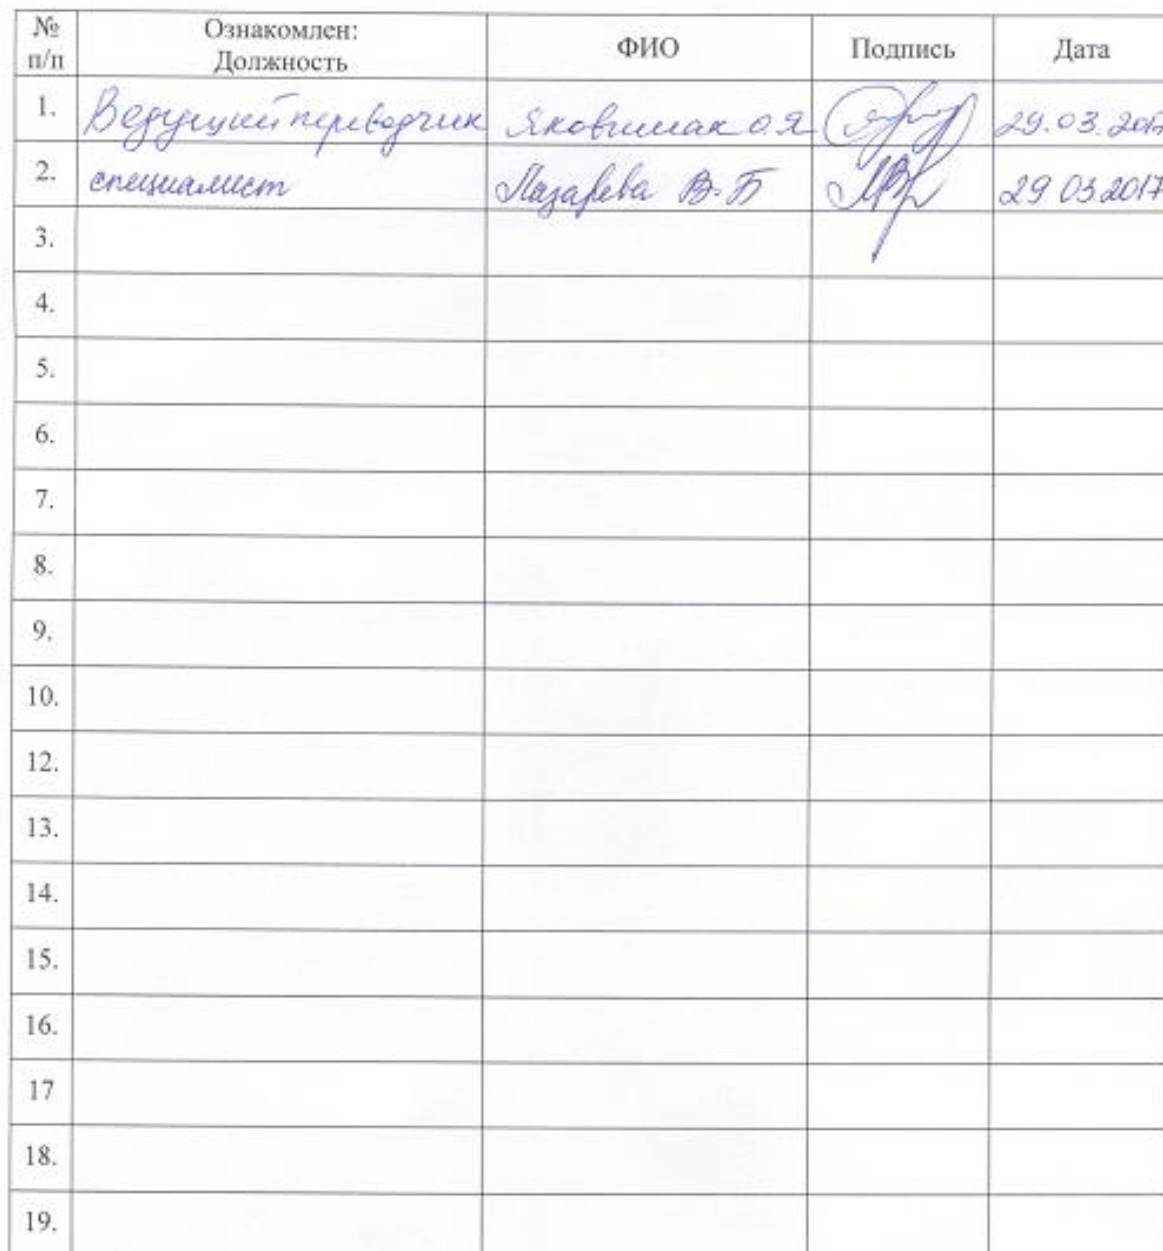 № п/п Ознакомлен: Должность ФИО Подпись Дата
1. Ведущий переводчик О.Я. 29.03.2017
2. специалист Лазарева В.Б 29.03.2017
3.
4.
5.
6.
7.
8.
9.
10.
12.
13.
14.
15.
16.
17
18.
19.